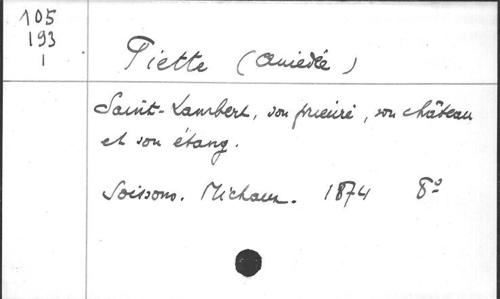 105
193
1
Piette (Amédée)
Saint-Lambert, son prieuré, son château
et son étang.
Soissons. Michaux. 1874 8°